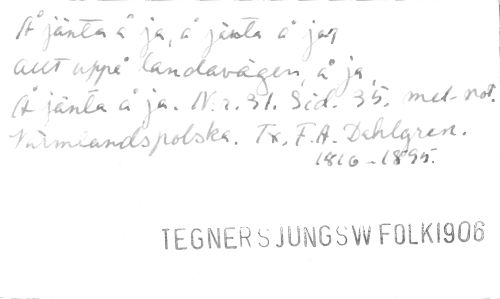 Å jänta å ja, å jänta å ja,
allt uppå landavägen, å ja,
Å jänta å ja. N:r. 31. Sid. 35. mel-not.
Värmlandspolska. Tx. F.A. Dahlgren.
1816-1895.
TEGNERSJUNGSWFOLK1906